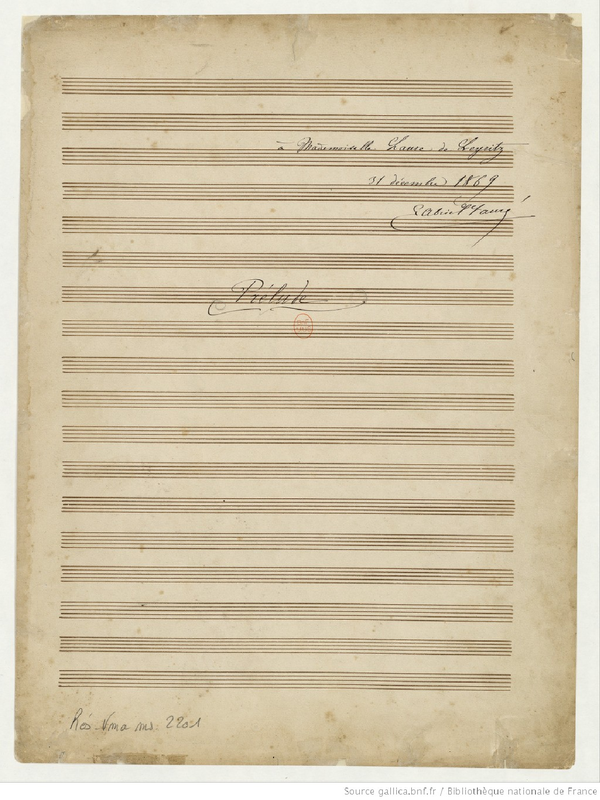 à Mademoiselle Laure de Leyritz
31 décembre 1869
Gabriel Fauré
Prélude
Rés. Vma ms. 2201
Source gallica.bnf.fr / Bibliothèque nationale de France